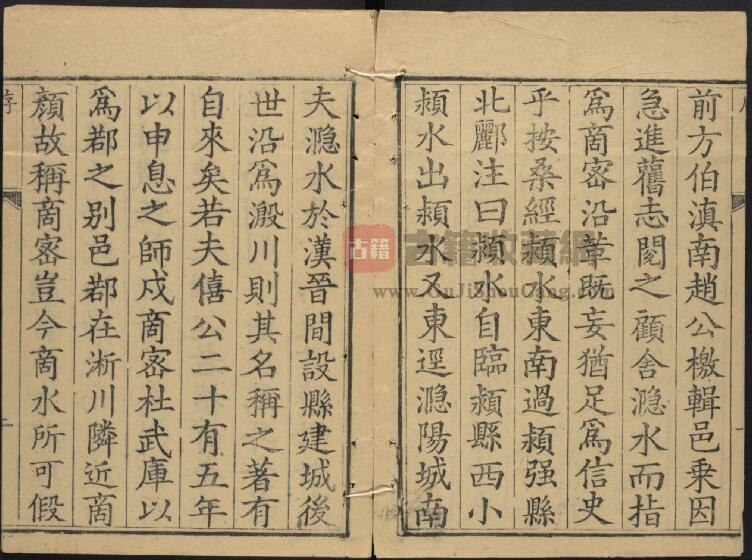 前方伯滇南趙公檄輯邑乗因
急進舊志閱之顧舍㶏水而指
爲商密沿革既妄猶足爲信史
乎按桑經潁水東南過潁强縣
北酈注曰潁水自臨潁縣西小
㶏水出潁水又東逕㶏陽城南
夫㶏水於漢晉間設縣建城後
世沿爲溵川則其名稱之著有
自來矣若夫僖公二十有五年
以申息之師戍商密杜武庫以
爲鄀之别邑鄀在淅川隣近商
顏故稱商密豈今商水所可假
序
二
古籍
古籍收藏網
www.GuJiShouCang.com